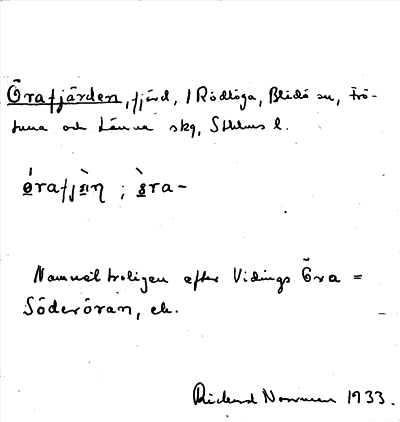 Örafjärden, fjärd, i Rödlöga, Blidö sn, Frö-
tuna och Länna skg, Sthlms l.
ørafjän ; øra-
Namnet troligen efter Vidings Öra =
Söderöran, ek.
Rickard Norrman 1933.